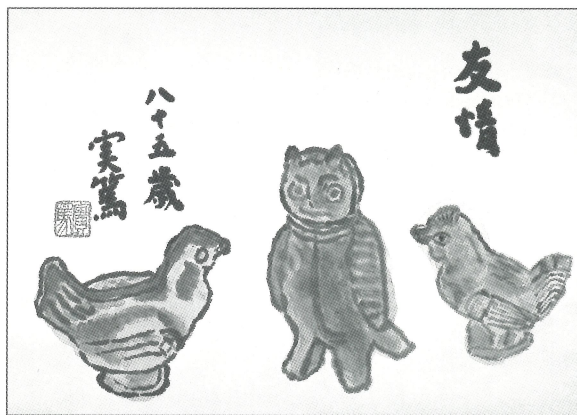 友情
八十五歳
実篤